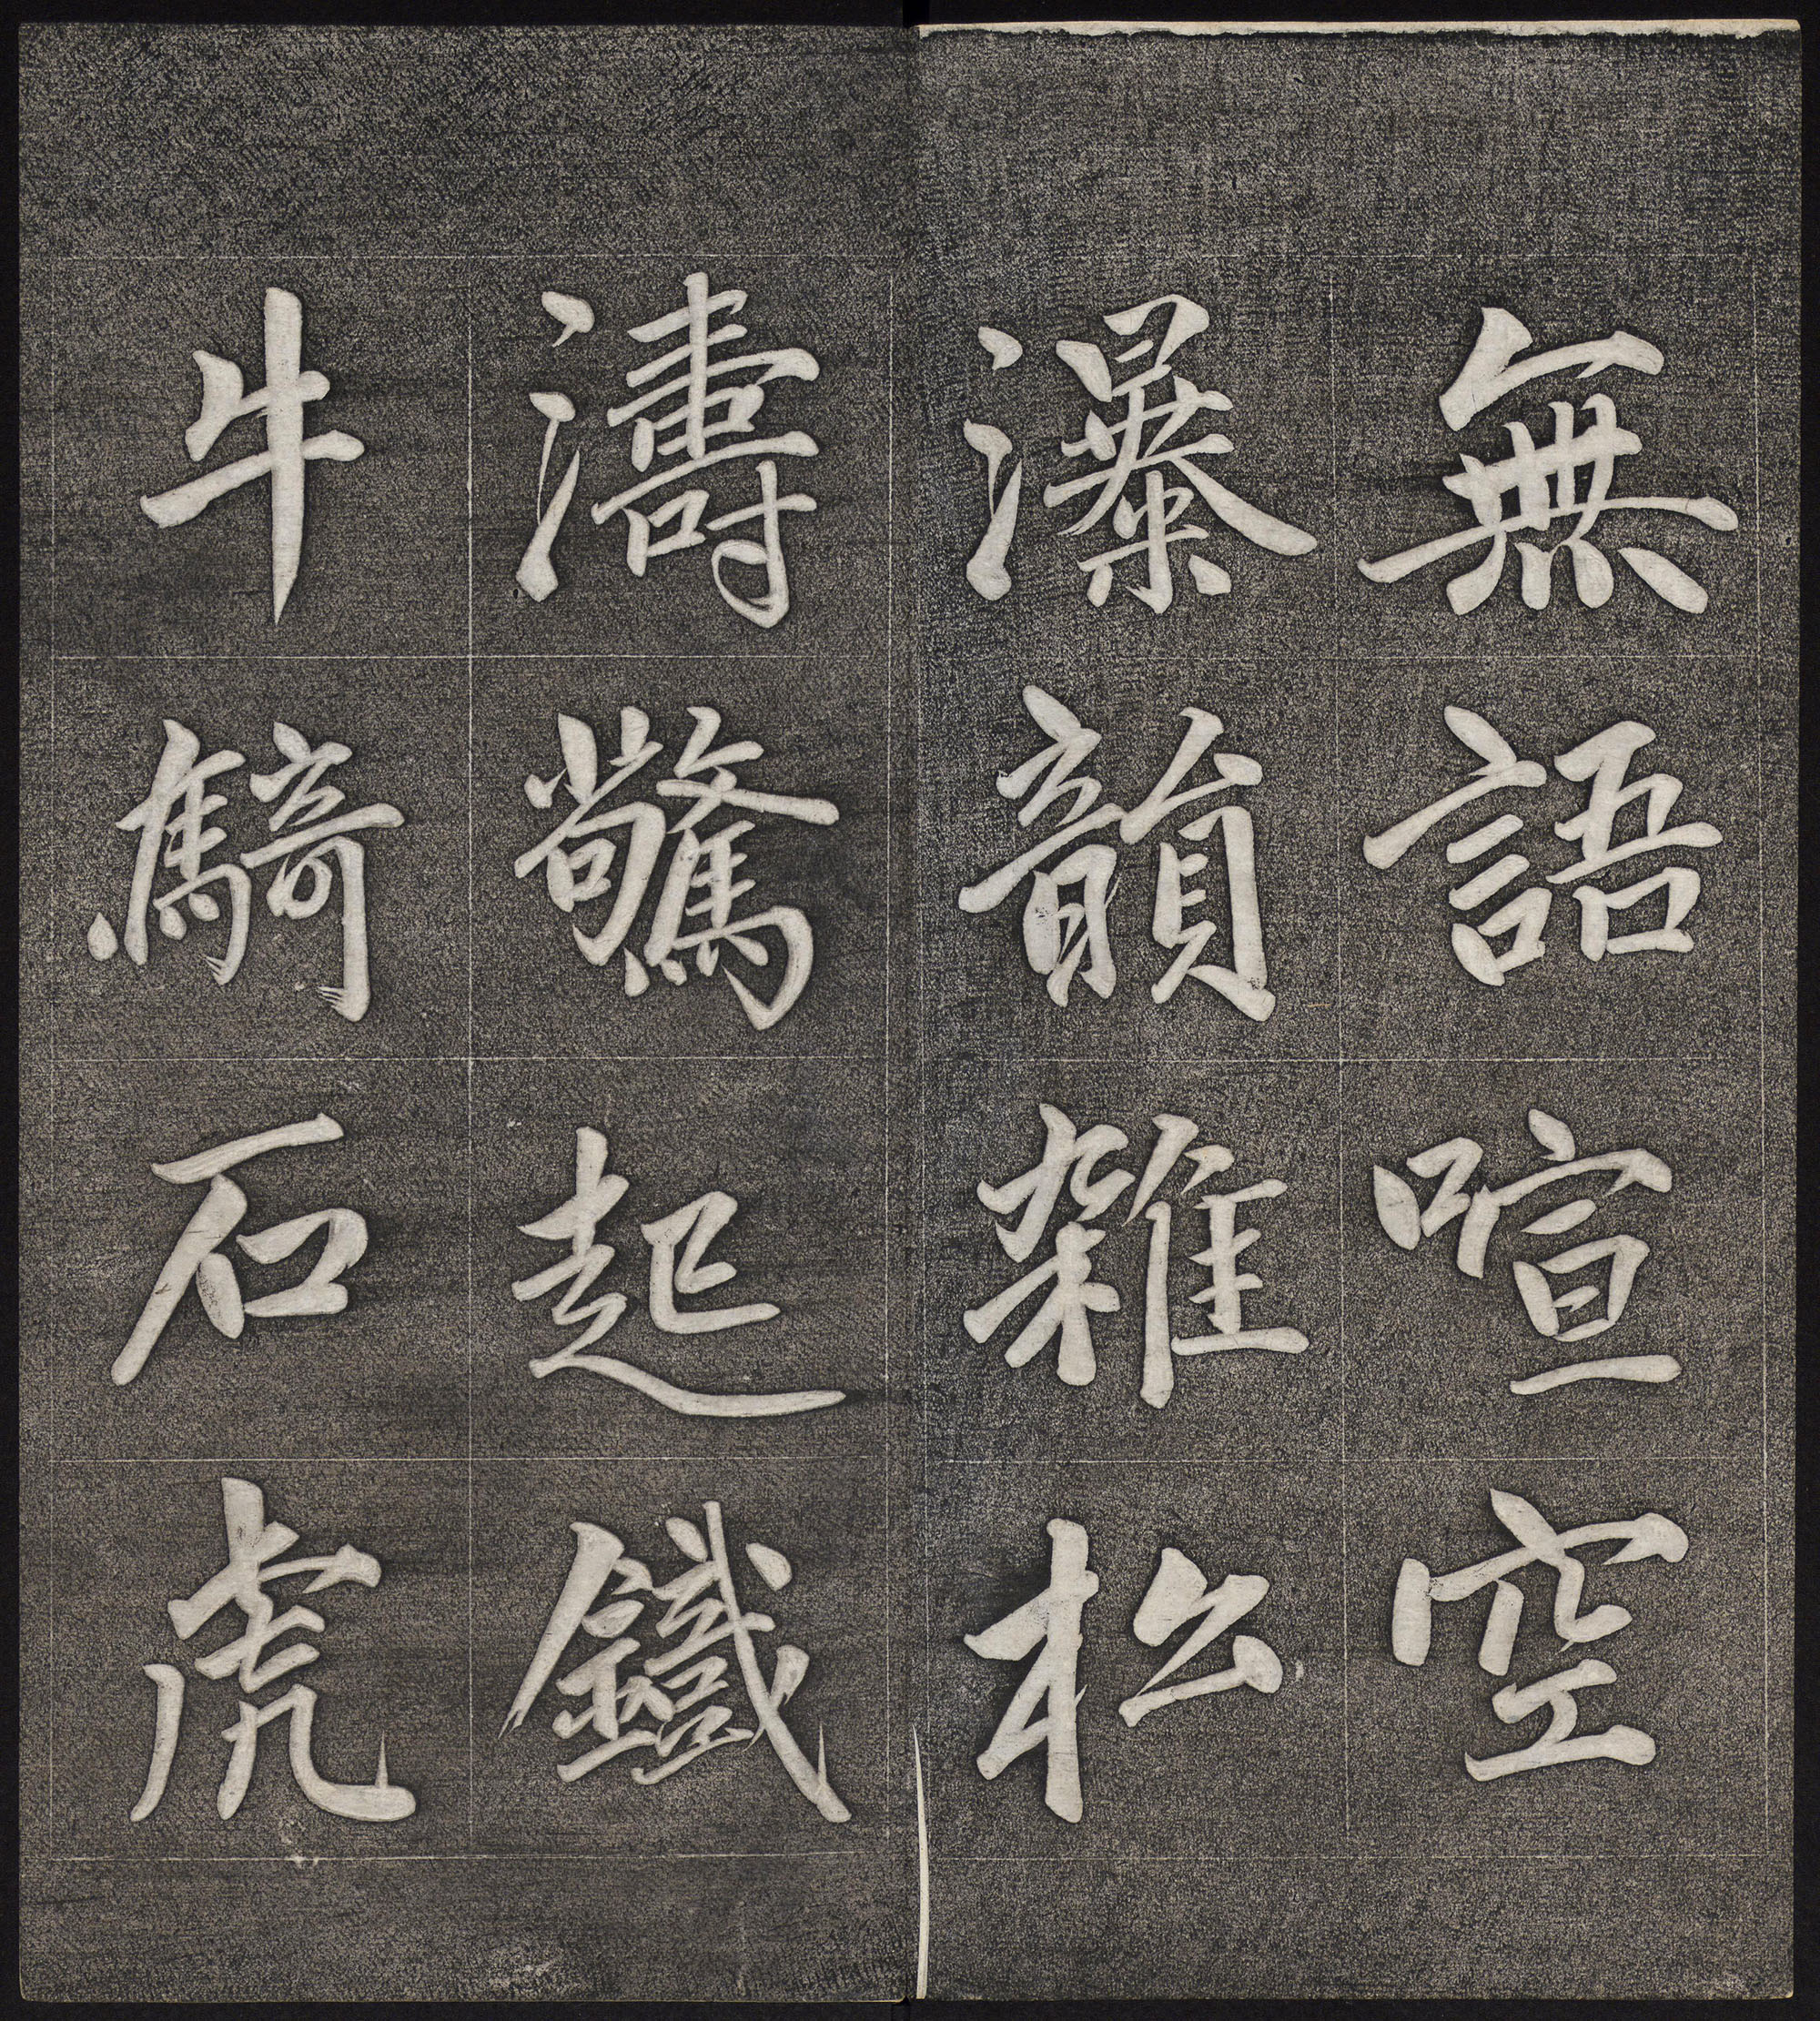 無語喧空
瀑韻雜松
濤驚起鐵
牛騎石虎